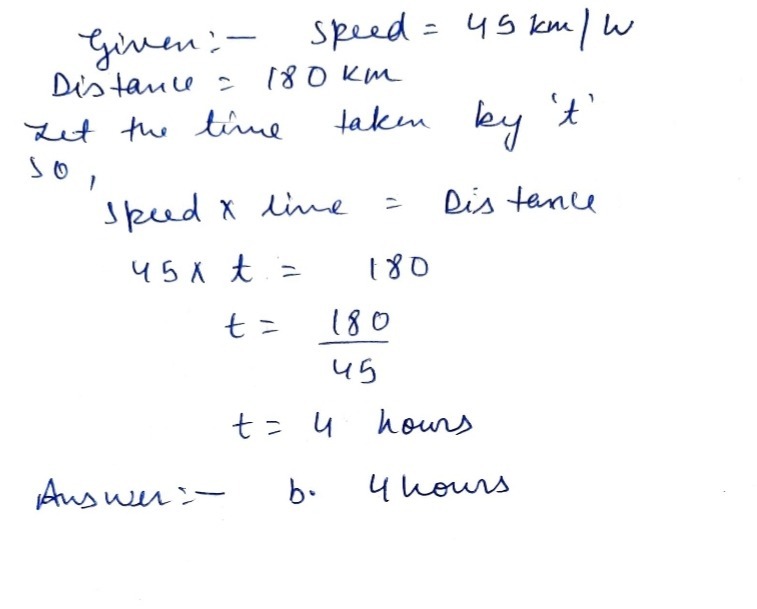 Given :- Speed = 45 km/h
Distance = 180 km
Let the time taken by 't'
so,
Speed x time = Distance
45 x t = 180
t = 180
45
t = 4 hours
Answer :- b. 4 hours